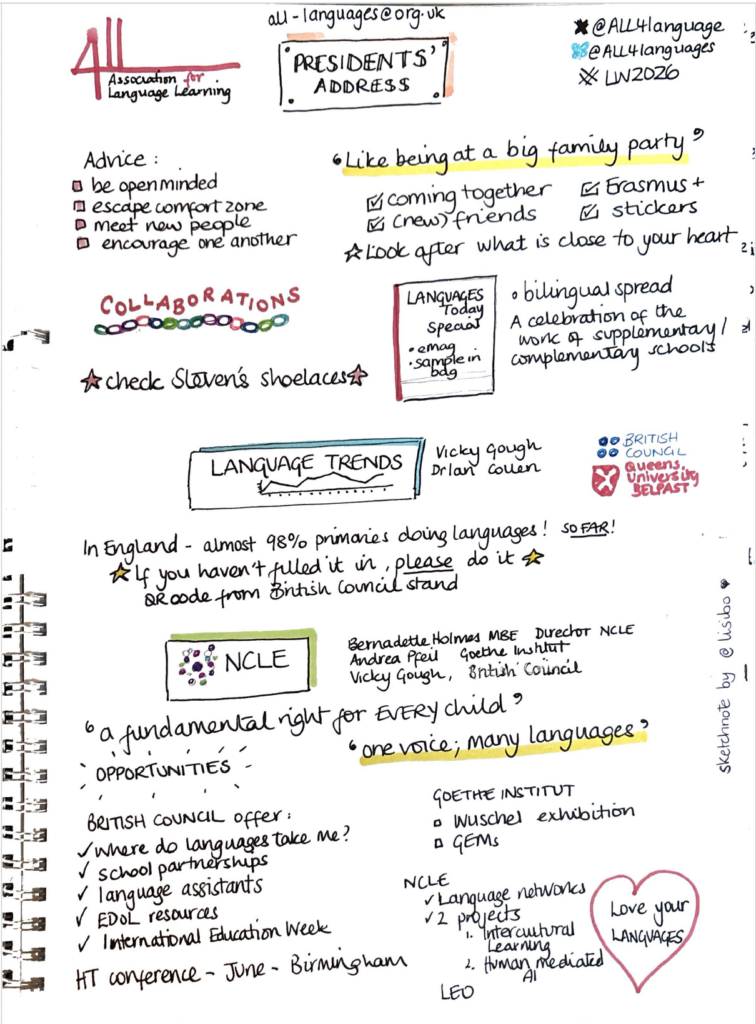 all-languages@org.uk
All
Association for
Language Learning
PRESIDENTS'
ADDRESS
@ALL4language
@ALL4languages
LW2026
Advice :
be openminded
escape comfort zone
meet new people
encourage one another
"Like being at a big family party"
coming together
(new) friends
Erasmus+
stickers
Look after what is close to your heart
COLLABORATIONS
check Steven's shoelaces
LANGUAGES
Today
Special
• emag
• sample in
bag
• bilingual spread
A celebration of the
work of supplementary/
complementary schools
LANGUAGE TRENDS
Vicky Gough
Dr Ian Collen
BRITISH
COUNCIL
Queens
University
BELFAST
In England - almost 98% primaries doing languages! SO FAR!
If you haven't filled it in, please do it
QR code from British Council stand
NCLE
Bernadette Holmes MBE Director NCLE
Andrea Pfeil Goethe Institut
Vicky Gough, British Council
"a fundamental right for EVERY child"
"one voice; many languages"
OPPORTUNITIES
BRITISH COUNCIL offer:
✓ Where do languages take me?
✓ school partnerships
✓ language assistants
✓ EDoL resources
✓ International Education Week
HT conference - June - Birmingham
GOETHE INSTITUT
Wuschel exhibition
GEMs
NCLE
✓ Language networks
✓ 2 projects
1. Intercultural
Learning
2. Human mediated
AI
LEO
Love your
LANGUAGES
sketchnote by @lisibo